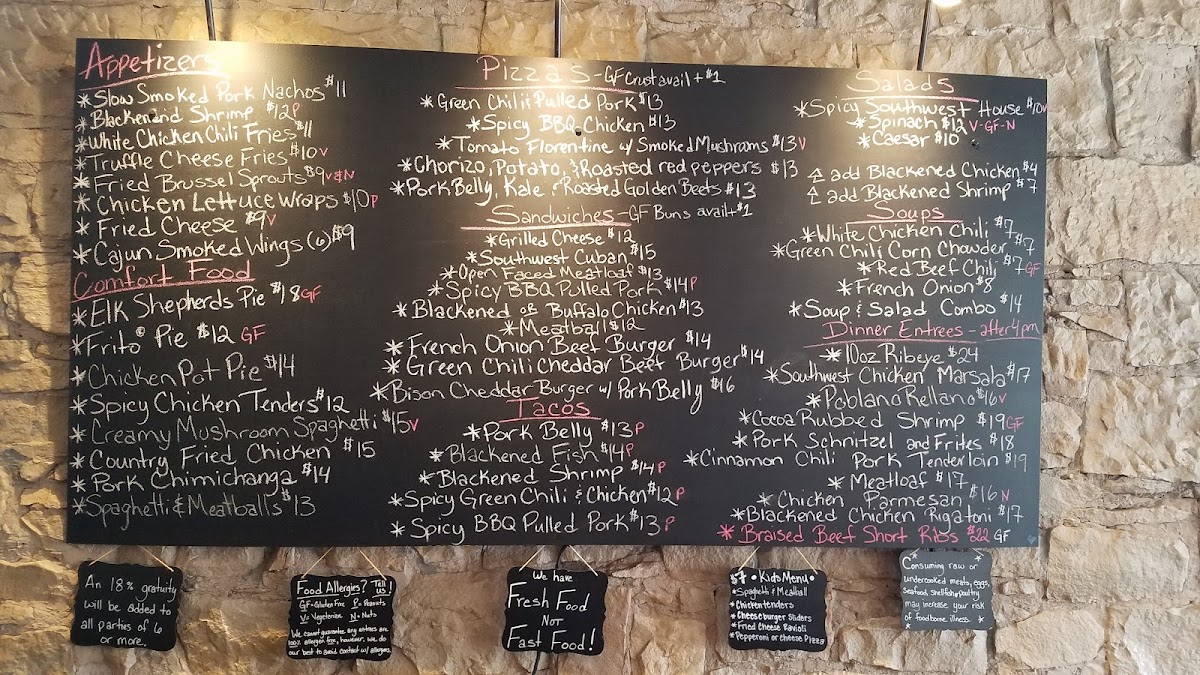 Appetizers
*Slow Smoked Pork Nachos $11
*Blackenand Shrimp $12 P
*White Chicken Chili Fries $11
*Truffle Cheese Fries $10 V
*Fried Brussel Sprouts $9 V&N
*Chicken Lettuce Wraps $10 P
*Fried Cheese $9 V
*Cajun Smoked Wings (6) $9
Comfort Food
*Elk Shepherds Pie $18 GF
*Frito® Pie $12 GF
*Chicken Pot Pie $14
*Spicy Chicken Tenders $12
*Creamy Mushroom Spaghetti $15 V
*Country Fried Chicken $15
*Pork Chimichanga $14
*Spaghetti & Meatballs $13
Pizzas - GF Crust avail + $1
*Green Chili & Pulled Pork $13
*Spicy BBQ Chicken $13
*Tomato Florentine w/ Smoked Mushrooms $13 V
*Chorizo, Potato, & Roasted red peppers $13
*Pork Belly, Kale & Roasted Golden Beets $13
Sandwiches - GF Buns avail + $1
*Grilled Cheese $12
*Southwest Cuban $15
*Open Faced Meatloaf $13
*Spicy BBQ Pulled Pork $14 P
*Blackened or Buffalo Chicken $13
*Meatball $12
*French Onion Beef Burger $14
*Green Chili Cheddar Beef Burger $14
*Bison Cheddar Burger w/ Pork Belly $16
Tacos
*Pork Belly $13 P
*Blackened Fish $14 P
*Blackened Shrimp $14 P
*Spicy Green Chili & Chicken $12 P
*Spicy BBQ Pulled Pork $13 P
Salads
*Spicy Southwest House $10 V
*Spinach $12 V-GF-N
*Caesar $10
add Blackened Chicken $4
add Blackened Shrimp $7
Soups
*White Chicken Chili $7
*Green Chili Corn Chowder $7
*Red Beef Chili $7 GF
*French Onion $8
*Soup & Salad Combo $14
Dinner Entrees - after 4 pm
*10oz Ribeye $24
*Southwest Chicken Marsala $17
*Poblano Rellano $16 V
*Cocoa Rubbed Shrimp $19 GF
*Pork Schnitzel and Frites $18
*Cinnamon Chili Pork Tenderloin $19
*Meatloaf $17
*Chicken Parmesan $16 N
*Blackened Chicken Rigatoni $17
*Braised Beef Short Ribs $22 GF
An 18% gratuity
will be added to
all parties of 6
or more.
Food Allergies? Tell us!
GF=Gluten Free P=Peanuts
V=Vegetarian N=Nuts
We cannot guarantee any entrees are
100% allergen free, however, we do
our best to avoid contact w/ allergens.
We have
Fresh Food
Not
Fast Food!
$7 • Kids Menu •
*Spaghetti & Meatball
*Chicken tenders
*Cheeseburger Sliders
*Fried Cheese Ravioli
*Pepperoni or Cheese Pizza
Consuming raw or
undercooked meats, eggs,
seafood, shellfish, poultry
may increase your risk
of foodborne illness.